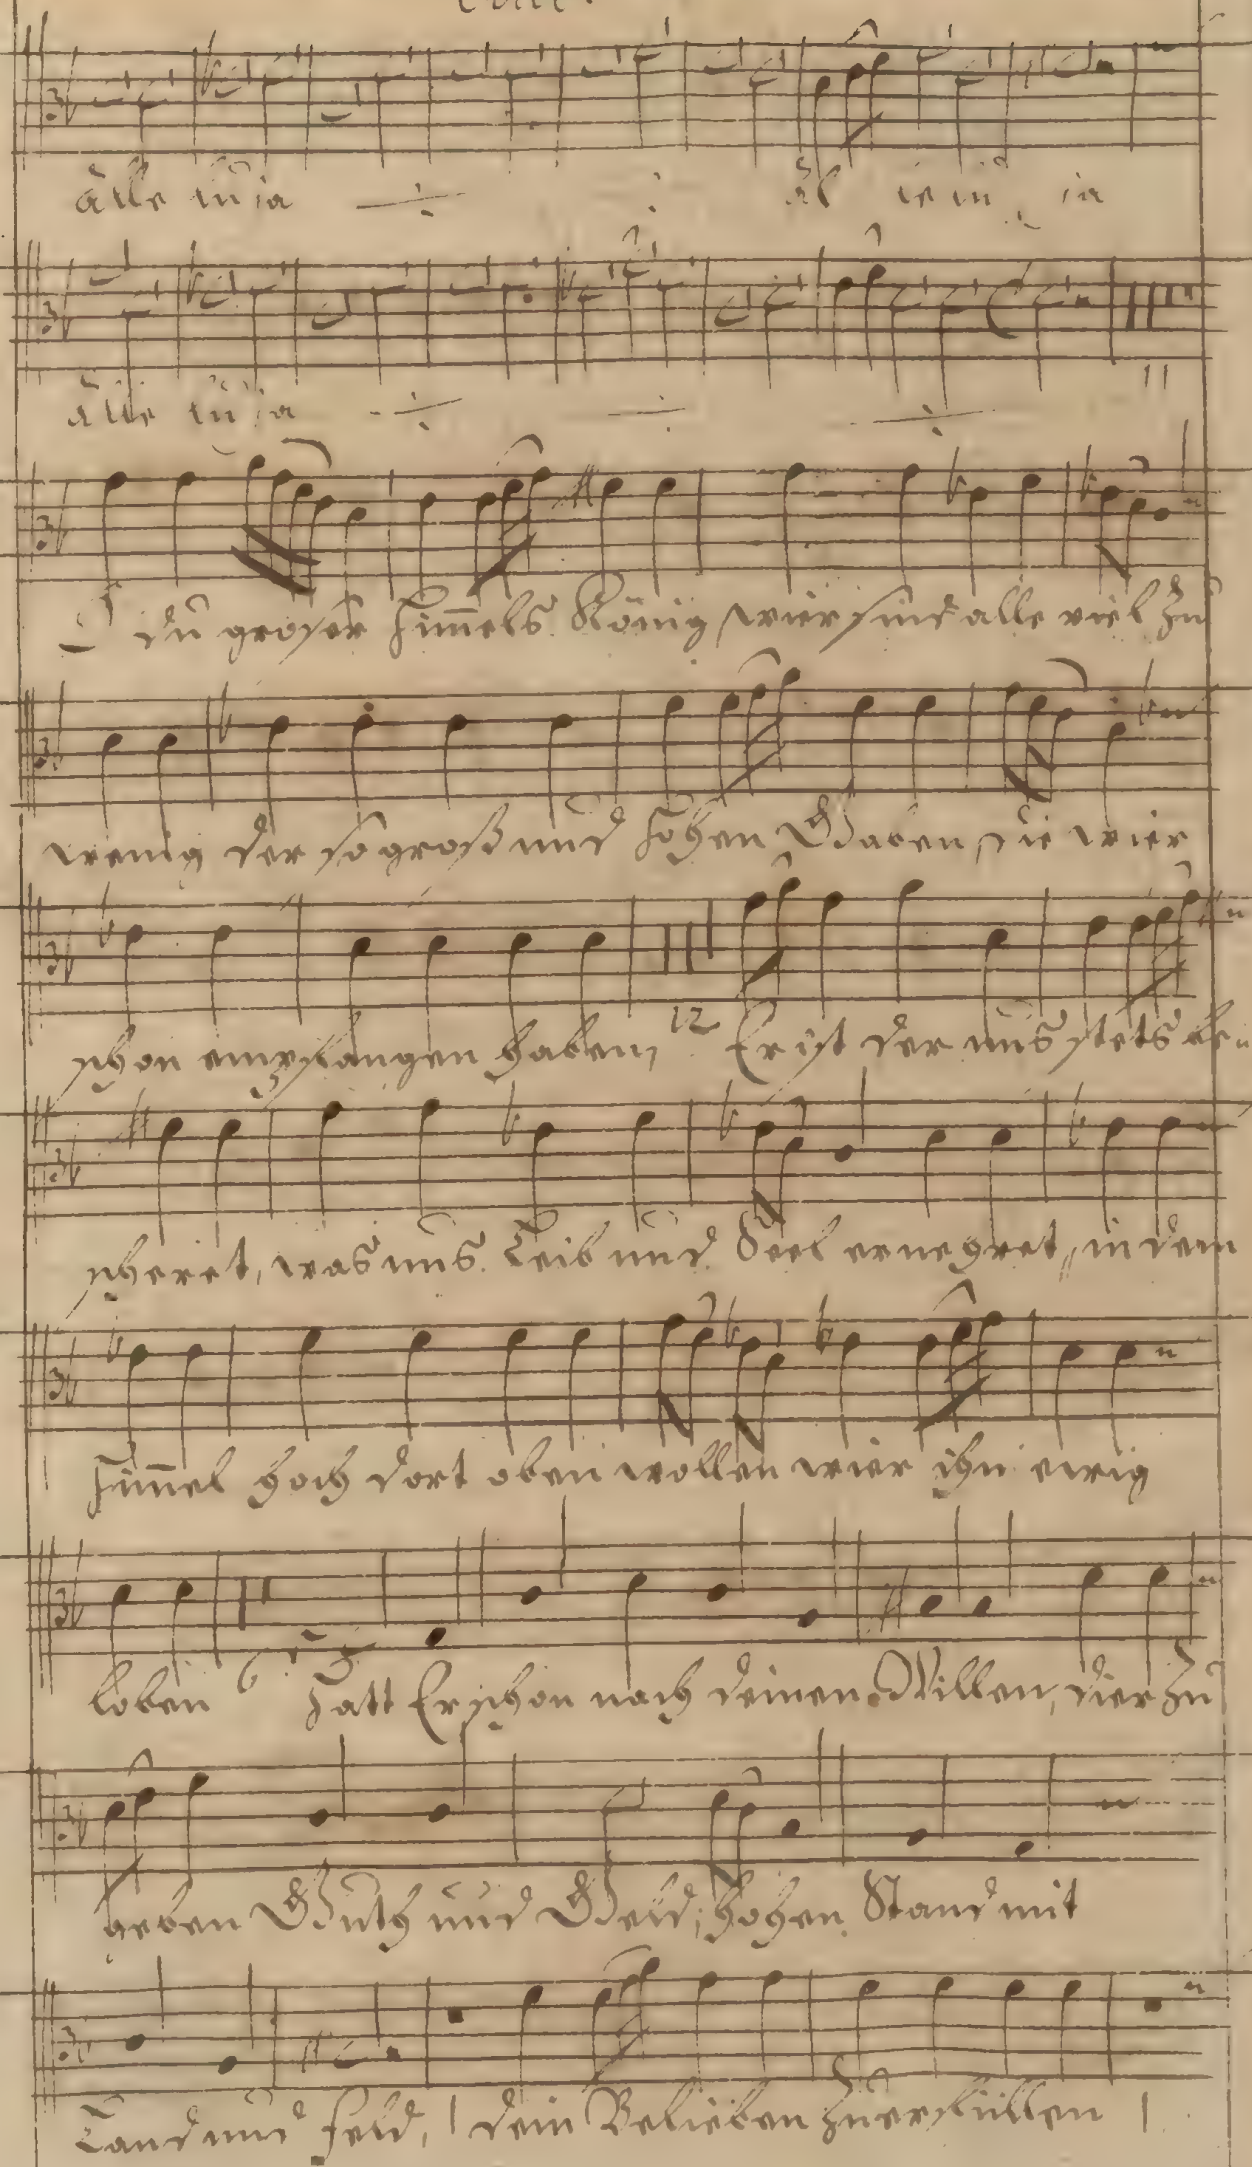 alle luja
al le lu ja
alle luja
O du groser Him̅els König, wier sind alle viel zu
wenig der so groß und hohen Gaben, die wier
schon empfangen haben, 12 Er ist der uns stets be
scheret, was uns Leib und Seel ernehret, in dem
Him̅el hoch dort oben wollen wier ihn ewig
loben 6 Hatt Er schon nach deinen Willen, dier zu
geben Guth und Geld, hohen Stand mit
Land und Feld, dein Belieben zu erfüllen